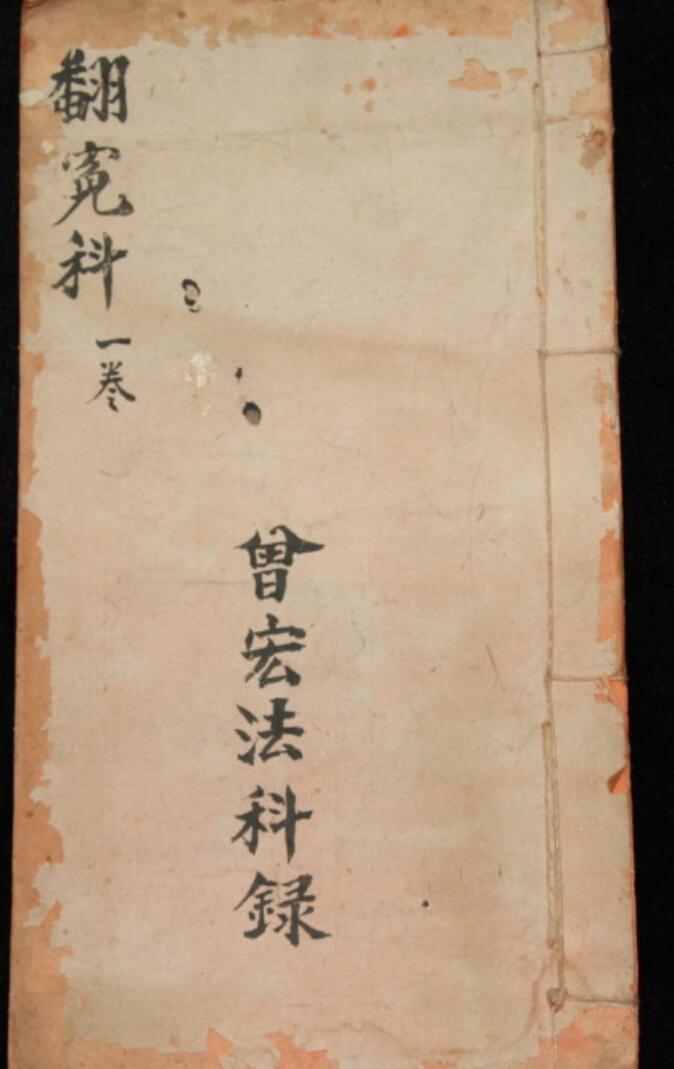 翻寃科 一卷
曾宏法科録